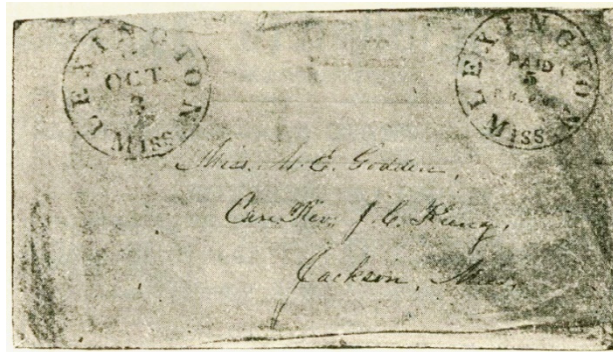 LEXINGTON
OCT
3
MISS
LEXINGTON
PAID
5
MISS
Miss. M. E. Godden,
Care Rev. J. C. Keeny,
Jackson, Miss.